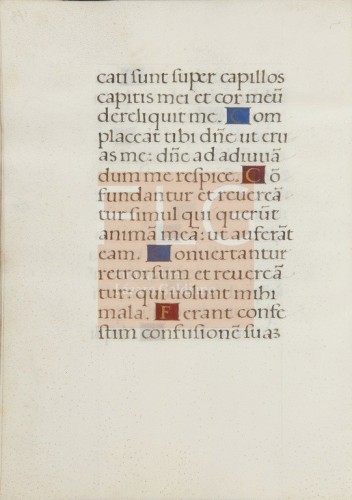 cati sunt super capillos
capitis mei et cor meū
dereliquit me. Com
placeat tibi dn̄e ut eru
as me: dn̄e ad adiuuā
dum me respice. Cō
fundantur et reuereā
tur simul qui querūt
animā meā: ut auferāt
eam. Conuertantur
retrorsum et reuereā
tur: qui uolunt mihi
mala. Ferant confe
stim confusionē suas
FLG